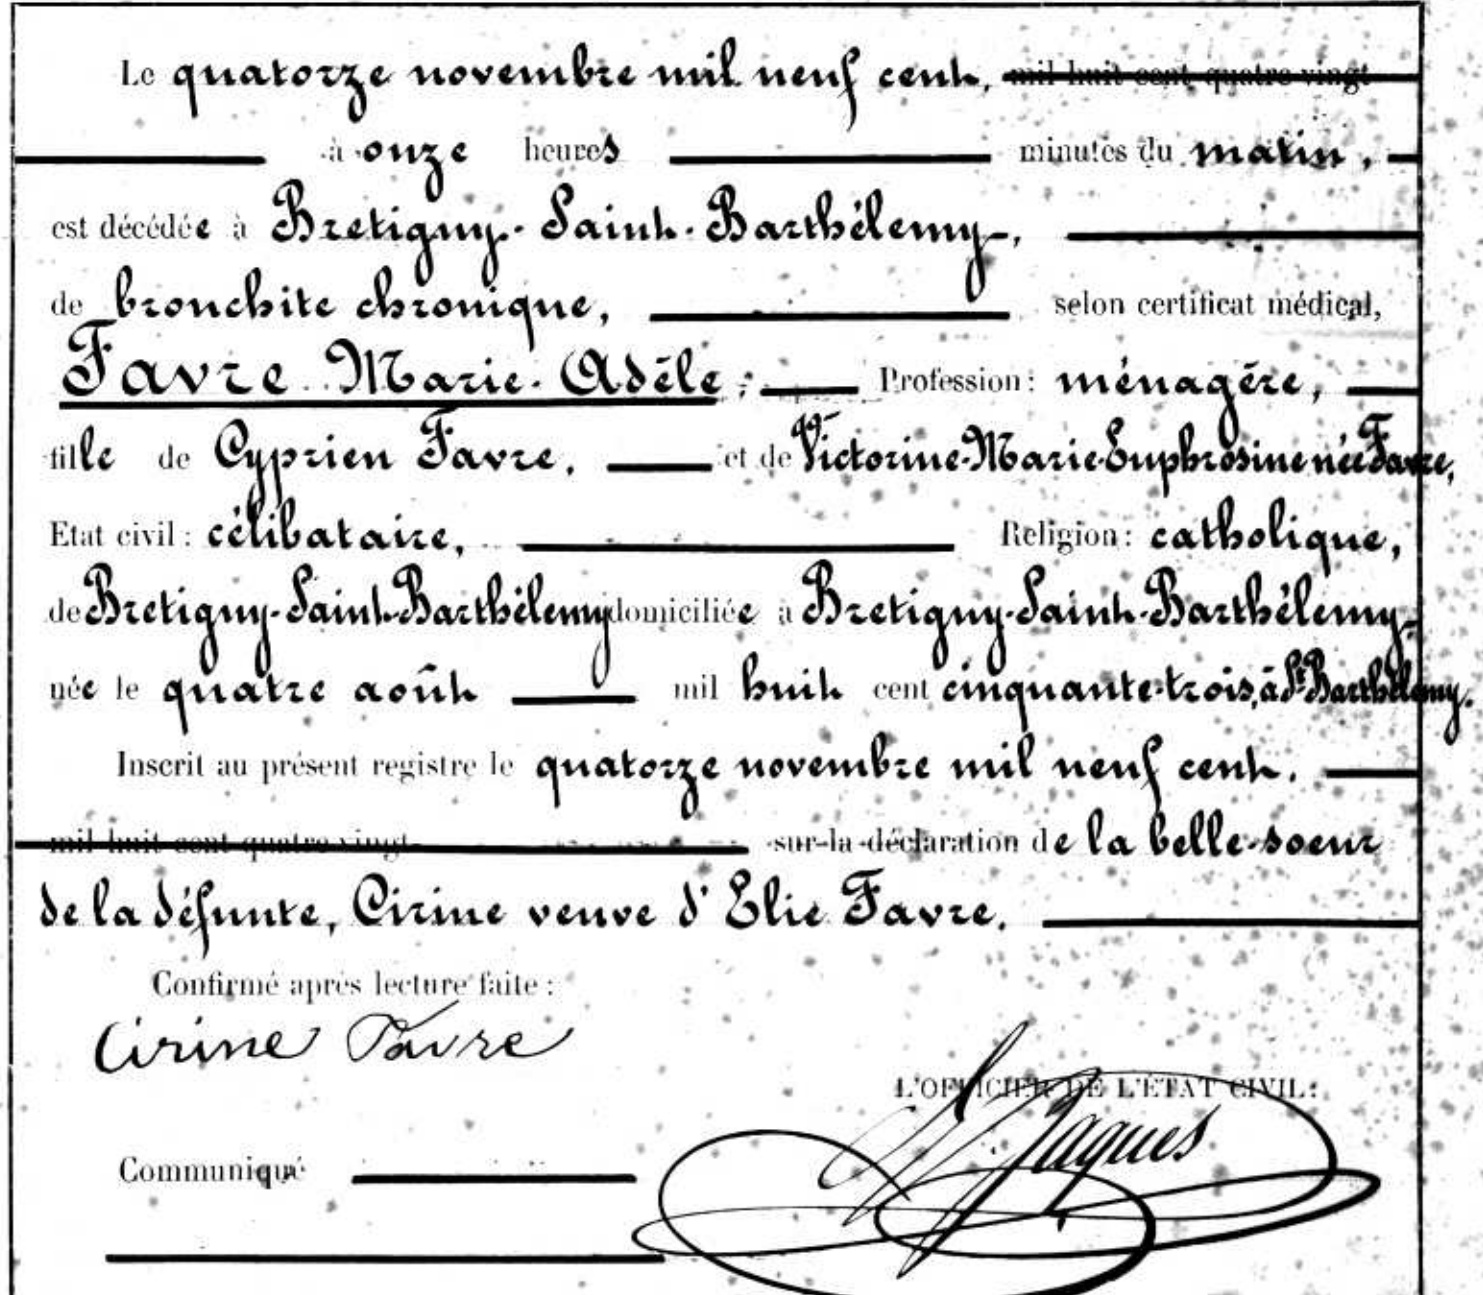 Le quatorze novembre mil neuf cent, mil huit cent quatre-vingt
à onze heures minutes du matin,
est décédée à Bretigny-Saint-Barthélemy,
de bronchite chronique, selon certificat médical,
Favre Marie-Adèle; Profession: ménagère,
fille de Cyprien Favre, et de Victorine-Marie-Euphrosine née Favre,
Etat civil: célibataire, Religion: catholique,
de Bretigny-Saint-Barthélemy domiciliée à Bretigny-Saint-Barthélemy
née le quatre août mil huit cent cinquante-trois, à St Barthélemy.
Inscrit au présent registre le quatorze novembre mil neuf cent.
mil huit cent quatre-vingt sur la déclaration de la belle-soeur
de la défunte, Cirine veuve d'Elie Favre.
Confirmé après lecture faite:
Cirine Favre
L'OFFICIER DE L'ÉTAT CIVIL:
Jaques
Communiqué